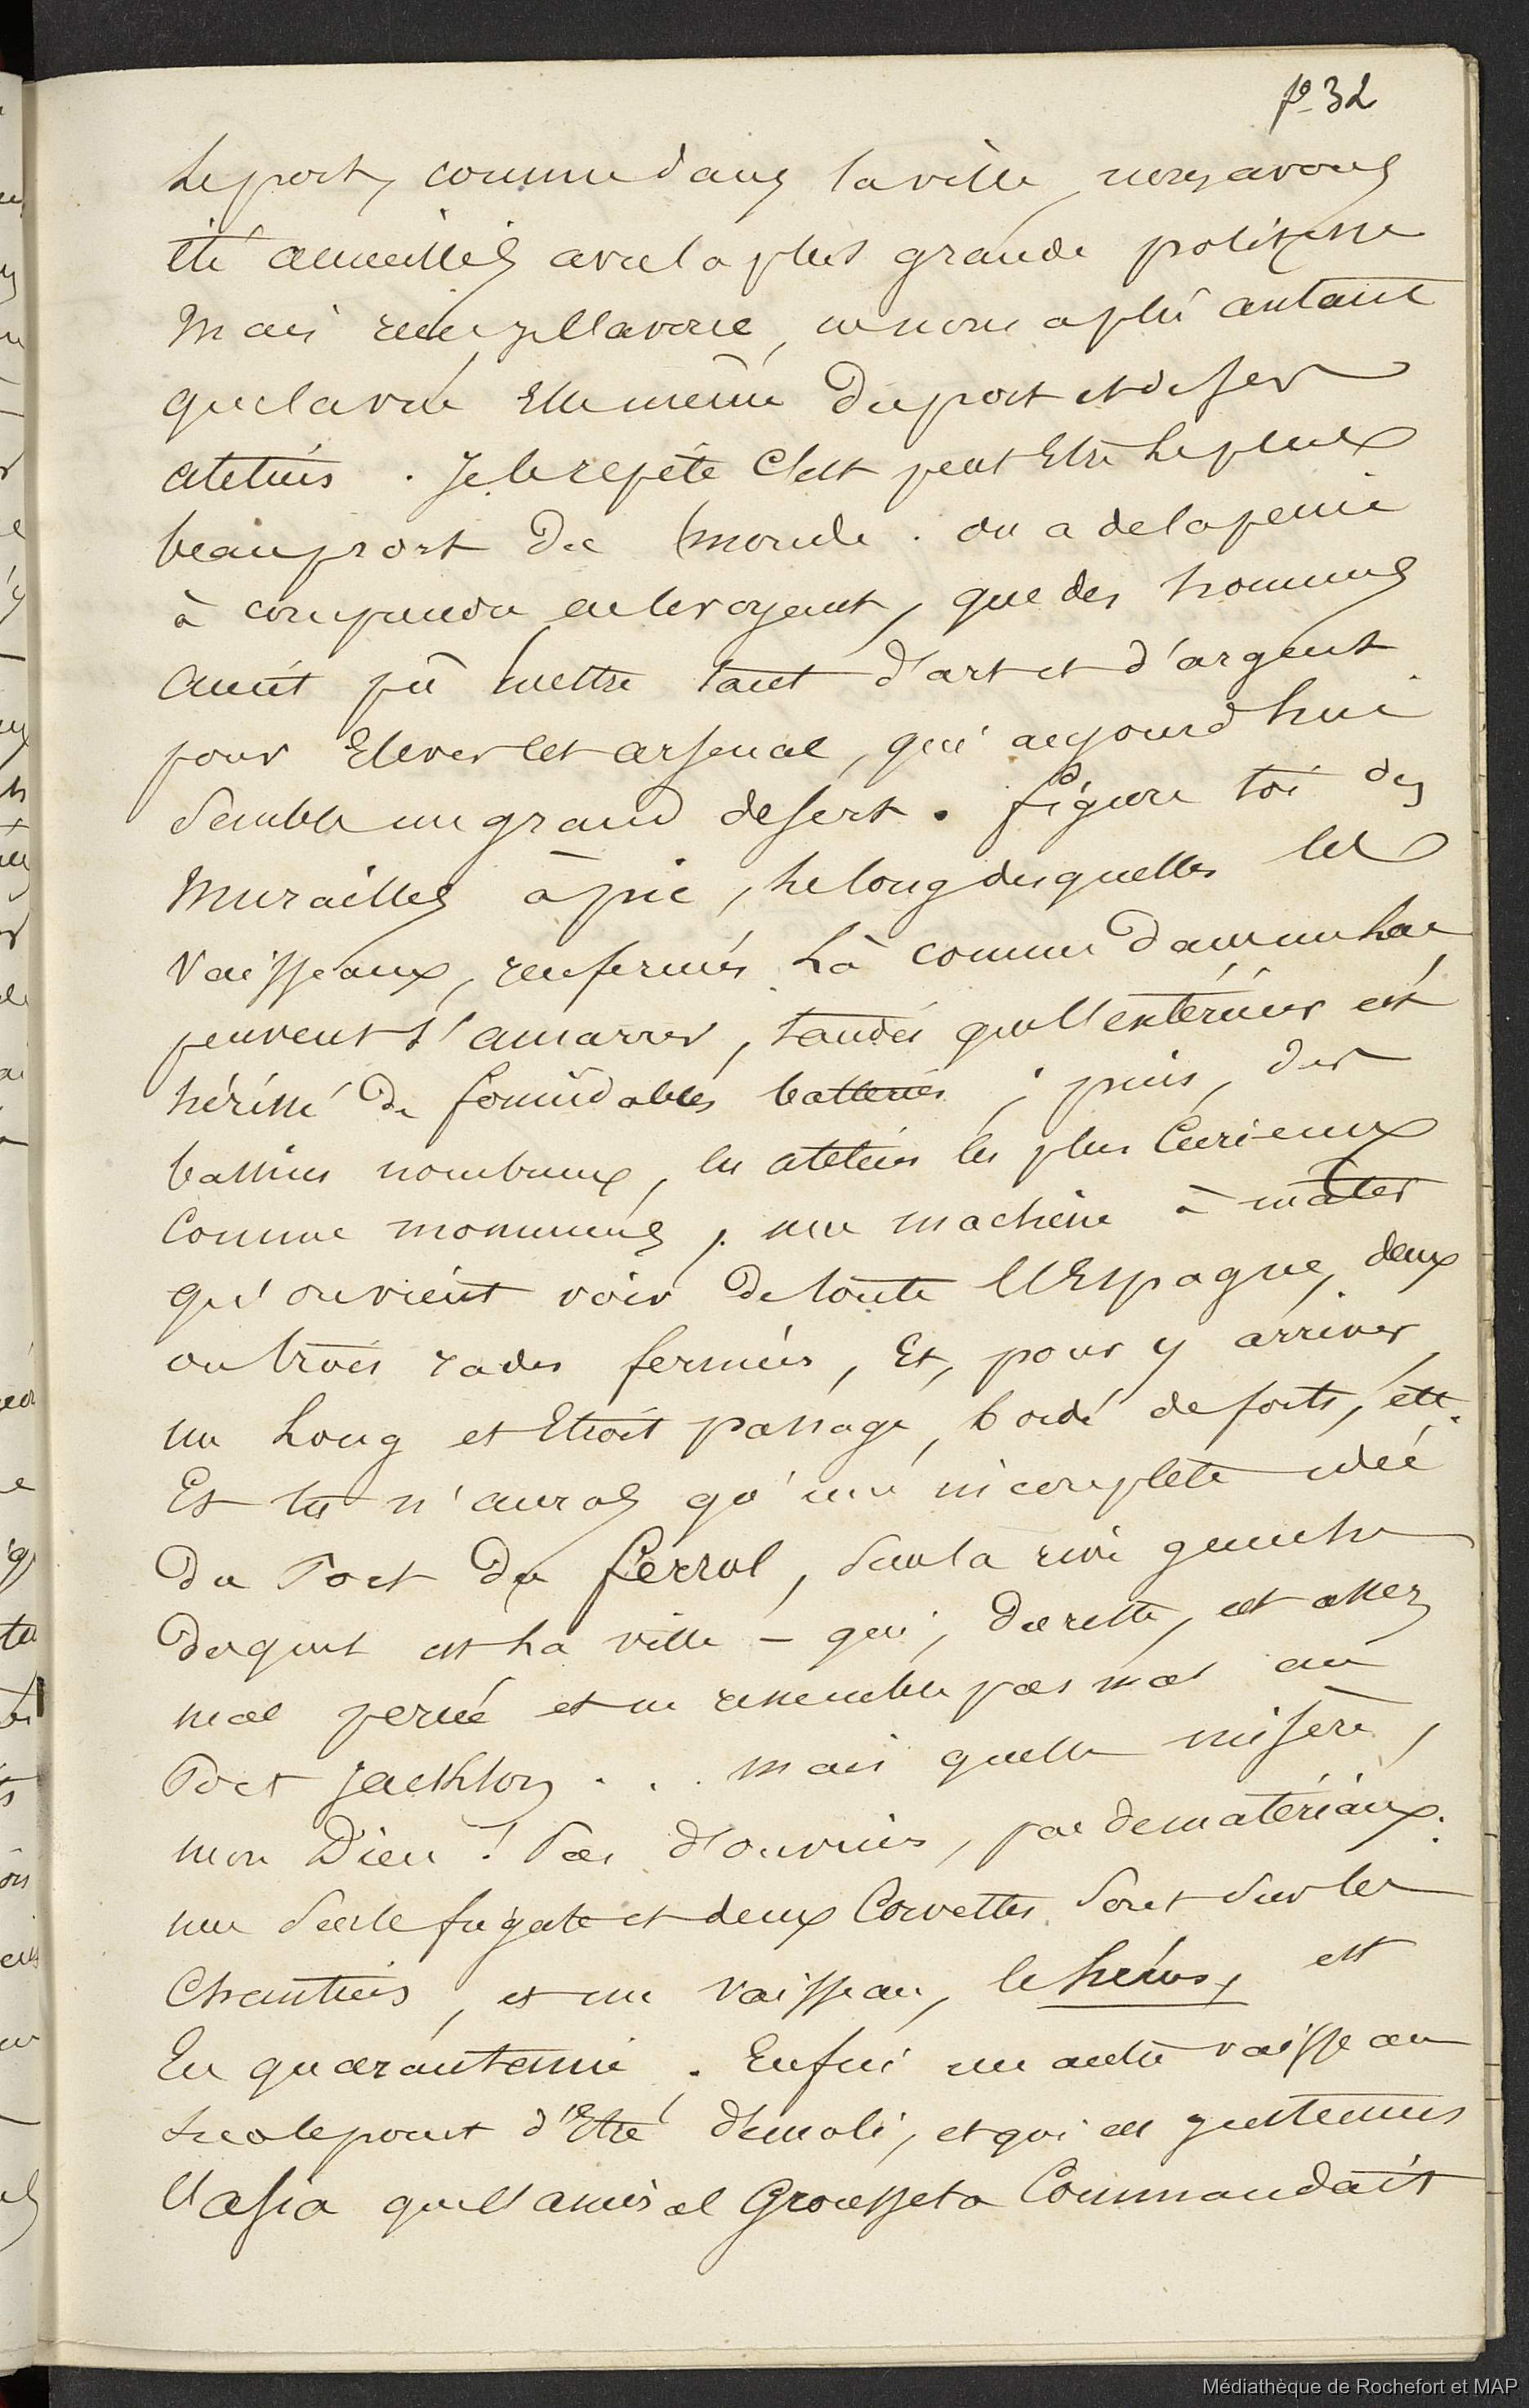 fo 32
le port, comme dans la ville, nous avons
été accueillis avec la plus grande politesse
Mais rien, je l'avoue, ne nous a plû autant
que la vue elle même du port et de ses
ateliers. Je le repête c'est peut Etre le plus
beau port du monde. on a de la peine
à comprendre en le voyant, que des hommes
aient pû mettre tant d'art et d'argent
pour Elever cet arsenal, qui aujourd'hui
semble un grand desert. figure toi des
Murailles à pic, le long desquelles les
Vaisseaux, renfermés là comme dans un lac
peuvent s'amarrer, tandis que l'extérieur est
hérissé de formidables batteries ; puis, des
bassins nombreux, les ateliers les plus curieux
comme monuments, une machine à mâter
qu'on vient voir de toute l'Espagne, deux
ou trois rades fermées, Et, pour y arriver,
un long et Etroit passage, bordé de forts, ett.
Et tu n'auras qu'une incomplète idée
du Port du ferrol, sur la rive gauche
duquel est la ville – qui, du reste, est assez
mal percée et ne ressemble pas mal au
Port Jackson . . . mais quelle misère,
mon Dieu ! Pas d'ouvriers, pas de matériaux.
une seule frégate et deux Corvettes sont sur les
Chantiers, et un vaisseau, le héros, est
En quarantaine. Enfin un autre vaisseau
sur le point d'Etre démoli, et qui est justement
l'asia que l'amiral Grousseta Commandait
Médiathèque de Rochefort et MAP